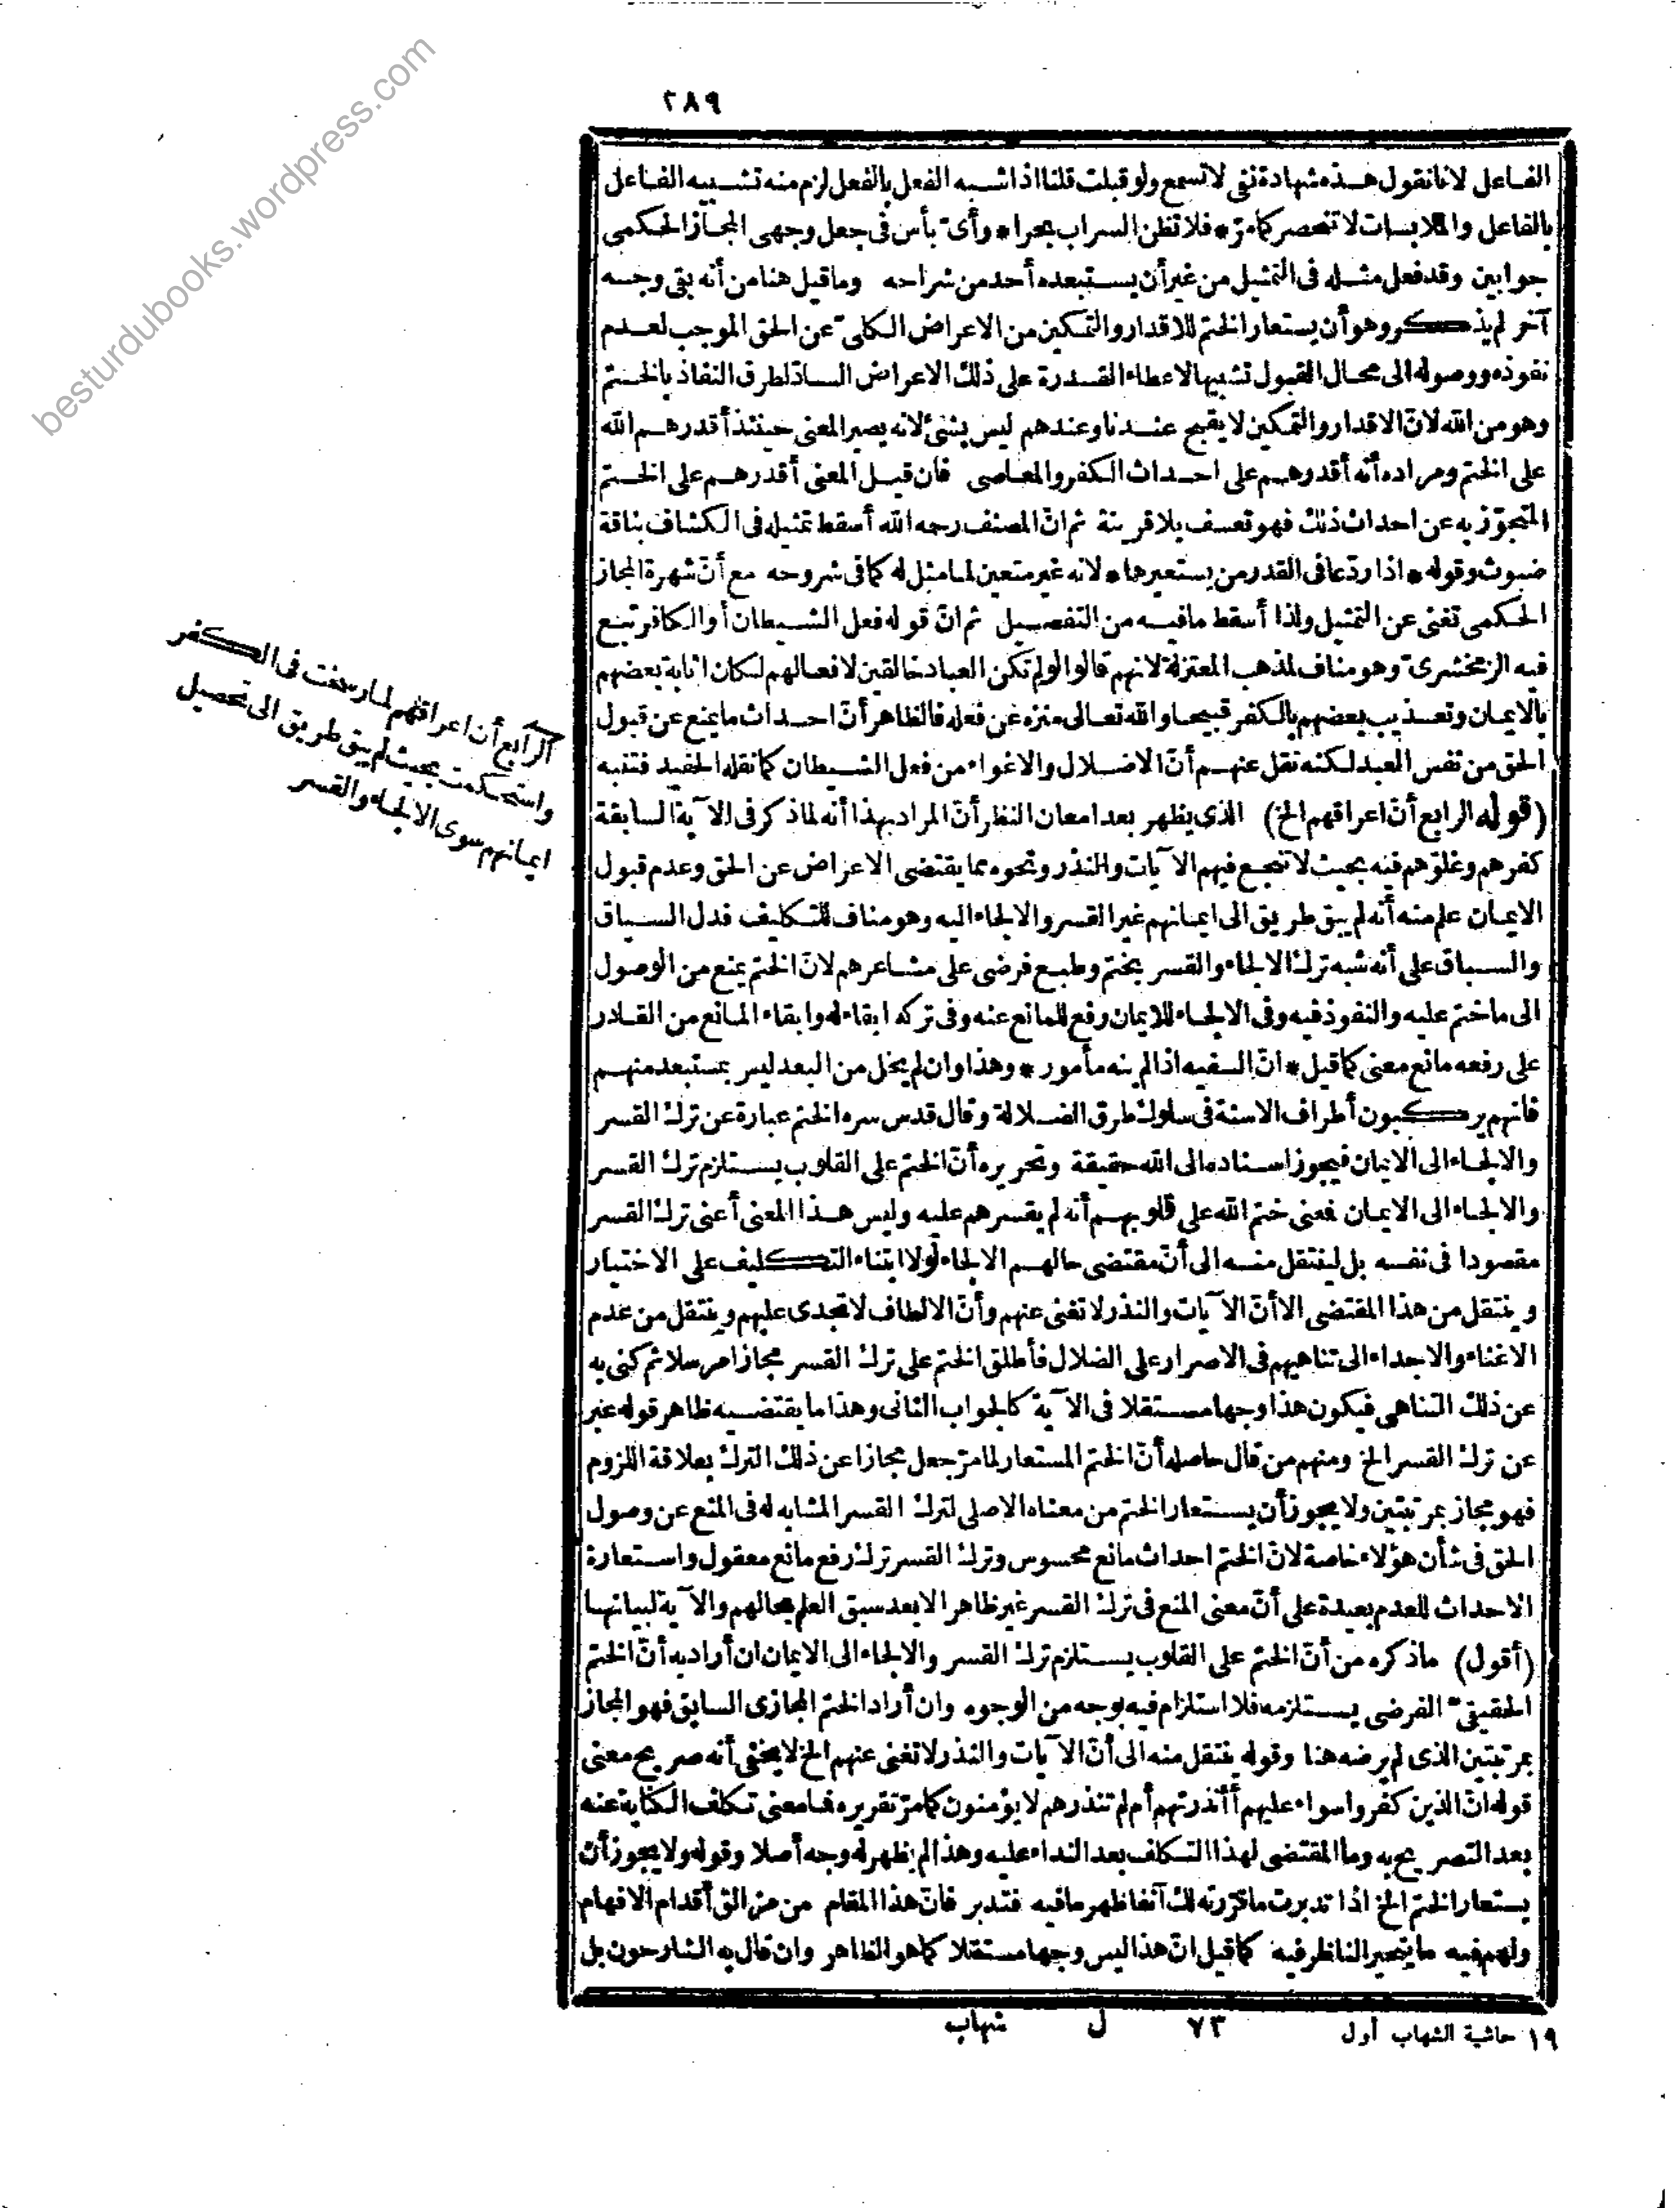 ٢٨٩
الفاعل لانا نقول هذه شهادة نفى لا تسمع ولو قبلت قلنا اذا شبه الفعل بالفعل لزم منه تشبيه الفاعل
بالفاعل والملابسات لا تنحصر كما مرّ * فلا تظن السراب بحرا * وأىّ بأس فى جعل وجهى المجاز الحكمى
جوابين وقد فعل مثله فى التمثيل من غير أن يستبعده أحد من شراحه وما قيل هنا من أنه بقى وجه
آخر لم يذكر وهو أن يستعار الختم للاقدار والتمكين من الاعراض الكلىّ عن الحق الموجب لعدم
نفوذه ووصوله الى محال القبول تشبيها لاعطاء القدرة على ذلك الاعراض السادّ لطرق النفاذ بالختم
وهو من الله لانّ الاقدار والتمكين لا يقبح عندنا وعندهم ليس بشئ لانه يصير المعنى حينئذ أقدرهم الله
على الختم ومراده أنه أقدرهم على احداث الكفر والمعاصى فان قيل المعنى أقدرهم على الختم
المتجوّز به عن احداث ذلك فهو تعسف بلا قرينة ثم انّ المصنف رحمه الله أسقط تمثيله فى الكشاف بناقة
ضبوث وقوله * اذا ردّ عافى القدر من يستعيرها * لانه غير متعين لما مثل له كما فى شروحه مع أنّ شهرة المجاز
الحكمى تغنى عن التمثيل ولذا أسقط ما فيه من التفصيل ثم انّ قوله فعل الشيطان أو الكافر تبع
فيه الزمخشرىّ وهو مناف لمذهب المعتزلة لانهم قالوا لو لم تكن العباد خالقين لافعالهم لكان اثابة بعضهم
بالايمان وتعذيب بعضهم بالكفر قبيحا والله تعالى منزه عن فعله فالظاهر أنّ احداث ما يمنع عن قبول
الحق من نفس العبد لكنه نقل عنهم أنّ الاضلال والاغواء من فعل الشيطان كما نقله الحفيد فتنبه
(قوله الرابع أنّ اعراقهم الخ) الذى يظهر بعد امعان النظر أنّ المراد بهذا أنه لما ذكر فى الآية السابقة
كفرهم وغلوّهم فيه بحيث لا تنجع فيهم الآيات والنذر ونحوه مما يقتضى الاعراض عن الحق وعدم قبول
الايمان علم منه أنه لم يبق طريق الى ايمانهم غير القسر والالجاء اليه وهو مناف للتكليف فدل السياق
والسباق على أنه شبه ترك الالجاء والقسر بختم وطبع فرضى على مشاعرهم لانّ الختم يمنع من الوصول
الى ما ختم عليه والنفوذ فيه وفى الالجاء للايمان رفع للمانع عنه وفى تركه ابقاء له وابقاء المانع من القادر
على رفعه مانع معنى كما قيل * انّ السفيه اذا لم ينه مأمور * وهذا وان لم يخل من البعد ليس بمستبعد منهم
فانهم يركبون أطراف الاسنة فى سلوك طرق الضلالة وقال قدس سره الختم عبارة عن ترك القسر
والالجاء الى الايمان فيجوز اسناده الى الله حقيقة وتحريره أنّ الختم على القلوب يستلزم ترك القسر
والالجاء الى الايمان فمعنى ختم الله على قلوبهم أنه لم يقسرهم عليه وليس هذا المعنى أعنى ترك القسر
مقصودا فى نفسه بل لينتقل منه الى أنّ مقتضى حالهم الالجاء لولا ابتناء التكليف على الاختيار
وينتقل من هذا المقتضى الا أنّ الآيات والنذر لا تغنى عنهم وأنّ الالطاف لا تجدى عليهم وينتقل من عدم
الاغناء والاجداء الى تناهيهم فى الاصرار على الضلال فأطلق الختم على ترك القسر مجازا مرسلا ثم كنى به
عن ذلك التناهى فيكون هذا وجها مستقلا فى الآية كالجواب الثانى وهذا ما يقتضيه ظاهر قوله عبر
عن ترك القسر الخ ومنهم من قال حاصله أنّ الختم المستعار لما مرّ جعل مجازا عن ذلك الترك بعلاقة اللزوم
فهو مجاز بمرتبتين ولا يجوز أن يستعار الختم من معناه الاصلى لترك القسر المشابه له فى المنع عن وصول
الحق فى شأن هؤلاء خاصة لانّ الختم احداث مانع محسوس وترك القسر ترك رفع مانع معقول واستعارة
الاحداث للعدم بعيدة على أنّ معنى المنع فى ترك القسر غير ظاهر الا بعد سبق العلم بحالهم والآية لبيانها
(أقول) ما ذكره من أنّ الختم على القلوب يستلزم ترك القسر والالجاء الى الايمان ان أراد به أنّ الختم
الحقيقىّ الفرضى يستلزمه فلا استلزام فيه بوجه من الوجوه وان أراد الختم المجازى السابق فهو المجاز
بمرتبتين الذى لم يرضه هنا وقوله ينتقل منه الى أنّ الآيات والنذر لا تغنى عنهم الخ لا يخفى أنه صريح معنى
قوله انّ الذين كفروا سواء عليهم أأنذرتهم أم لم تنذرهم لا يؤمنون كما مرّ تقريره فما معنى تكلف الكناية عنه
بعد التصريح به وما المقتضى لهذا التكلف بعد النداء عليه وهذا لم يظهر له وجه أصلا وقوله ولا يجوز أن
يستعار الختم الخ اذا تدبرت ما قرّرته لك آنفا ظهر ما فيه فتدبر فانّ هذا المقام من مزالق أقدام الافهام
ولهم فيه ما يتحير الناظر فيه كما قيل انّ هذا ليس وجها مستقلا كما هو الظاهر وان قال به الشارحون بل
الرابع أن اعراقهم لما رسخت فى الكفر
واستحكمت بحيث لم يبق طريق الى تحصيل
ايمانهم سوى الالجاء والقسر
١٩ حاشية الشهاب أول ٧٣ ل شهاب
besturdubooks.wordpress.com